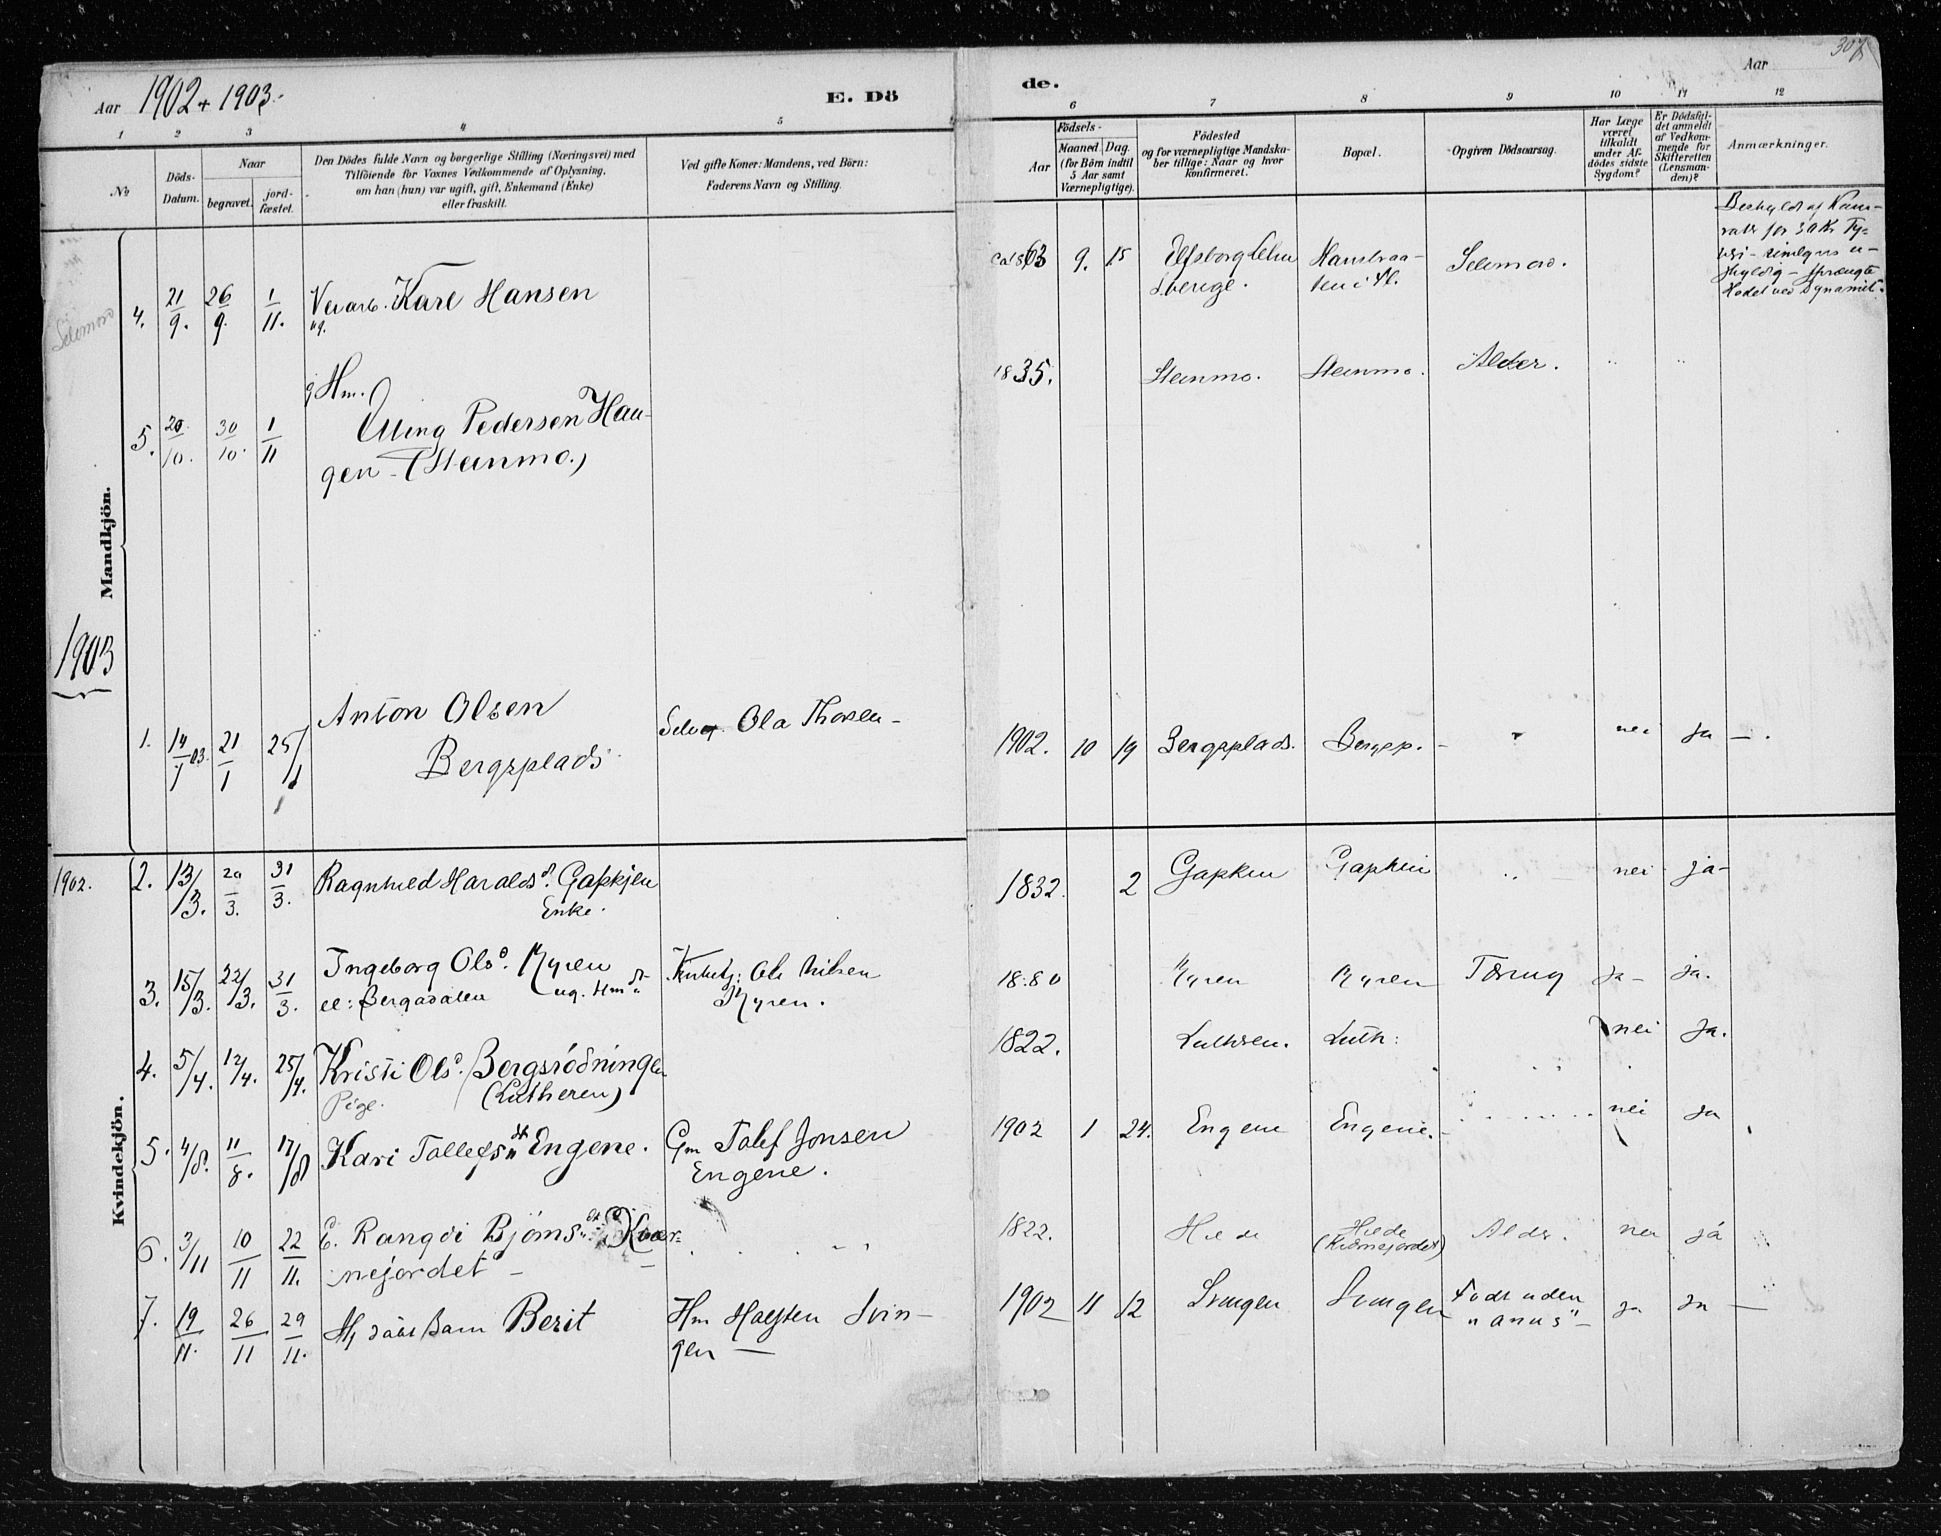 Aar 1902 + 1903.
E. Dö
de.
Aar
307
1 2 3 4 5
6 7 8 9 10 11 12
No
Döds-
Datum.
Naar
begravet.
jord-
fæstet.
Den Dödes fulde Navn og borgerlige Stilling (Næringsvei) med
Tilföiende for Voxnes Vedkommende af Oplysning,
om han (hun) var ugift, gift, Enkemand (Enke)
eller fraskilt.
Ved gifte Koner: Mandens, ved Börn:
Faderens Navn og Stilling.
Födsels-
Aar
Maaned. Dag.
(for Börn indtil
5 Aar samt
Værnepligtige).
Födested
og for værnepligtige Mandska-
ber tillige: Naar og hvor
konfirmeret.
Bopæl.
Opgiven Dödsaarsag.
Har Læge
været
tilkaldt
under Af-
dödes sidste
Sygdom?
Er Dödsfal-
det anmeldt
af Vedkom-
mende for
Skifteretten
(Lensman-
den)?
Anmærkninger.
Mandkjön.
Selvmord
4. 21/9. 26/9. 1/11. Veiarb. Karl Hansen
ug.
ca 1863 9. 15 Elfsborg Lehn
Sverige.
Selvmord.
Beskyldt af Kam-
rat for 30 Kr Ty-
veri - rimligvis u-
skyldig - sprængte
Hodet ved Dynamit.
5. 20/10. 30/10. 1/11
g Hm.
Elling Pedersen Hau-
gen - (Steinmo.)
1835. Steinmo. Steinmo. Alder. " "
1903
1. 14/1 03. 21/1 25/1 Anton Olsen
Bergsplads
Selv. Ola Thorsen -
1902. 10 19 Bergsplads. Bergsp. - " nei ja - .
Kvindekjön.
1902.
2. 13/3. 20/3. 31/3. Ragnhild Haralds d. Gapkjen
Enke.
1832. 2 Gapken Gapkin " nei ja -
3. 15/3. 22/3. 31/3. Ingeborg Ols d. Myren
el: Bergadalen ug. Hm dt
Ole Nilsen
Myren.
1880 Myren Myren Tæring ja - ja.
4. 5/4. 12/4. 25/4. Kristi Ols d. Bergsrödningen
Pige. (Lutheren)
1822. Luthren. Luth: nei ja.
5. 4/8. 11/8. 17/8 Kari Tollefs dt Engene.
Gm Tolef Jonsen
Engene.
1902 1 24. Engene Engene. - nei ja
6. 3/11 10/11 22/11. E. Rangdi Björns dt Kvær-
nejordet -
1822. Hilde Hilde
(Kværnejordet) Alder. nei ja
7. 19/11. 26/11 29/11. Hj. döbt Barn Berit
Hm Halsten Svin-
gen -
1902 11 12 Svingen Svingen Födt uden
"anus" - ja ja -